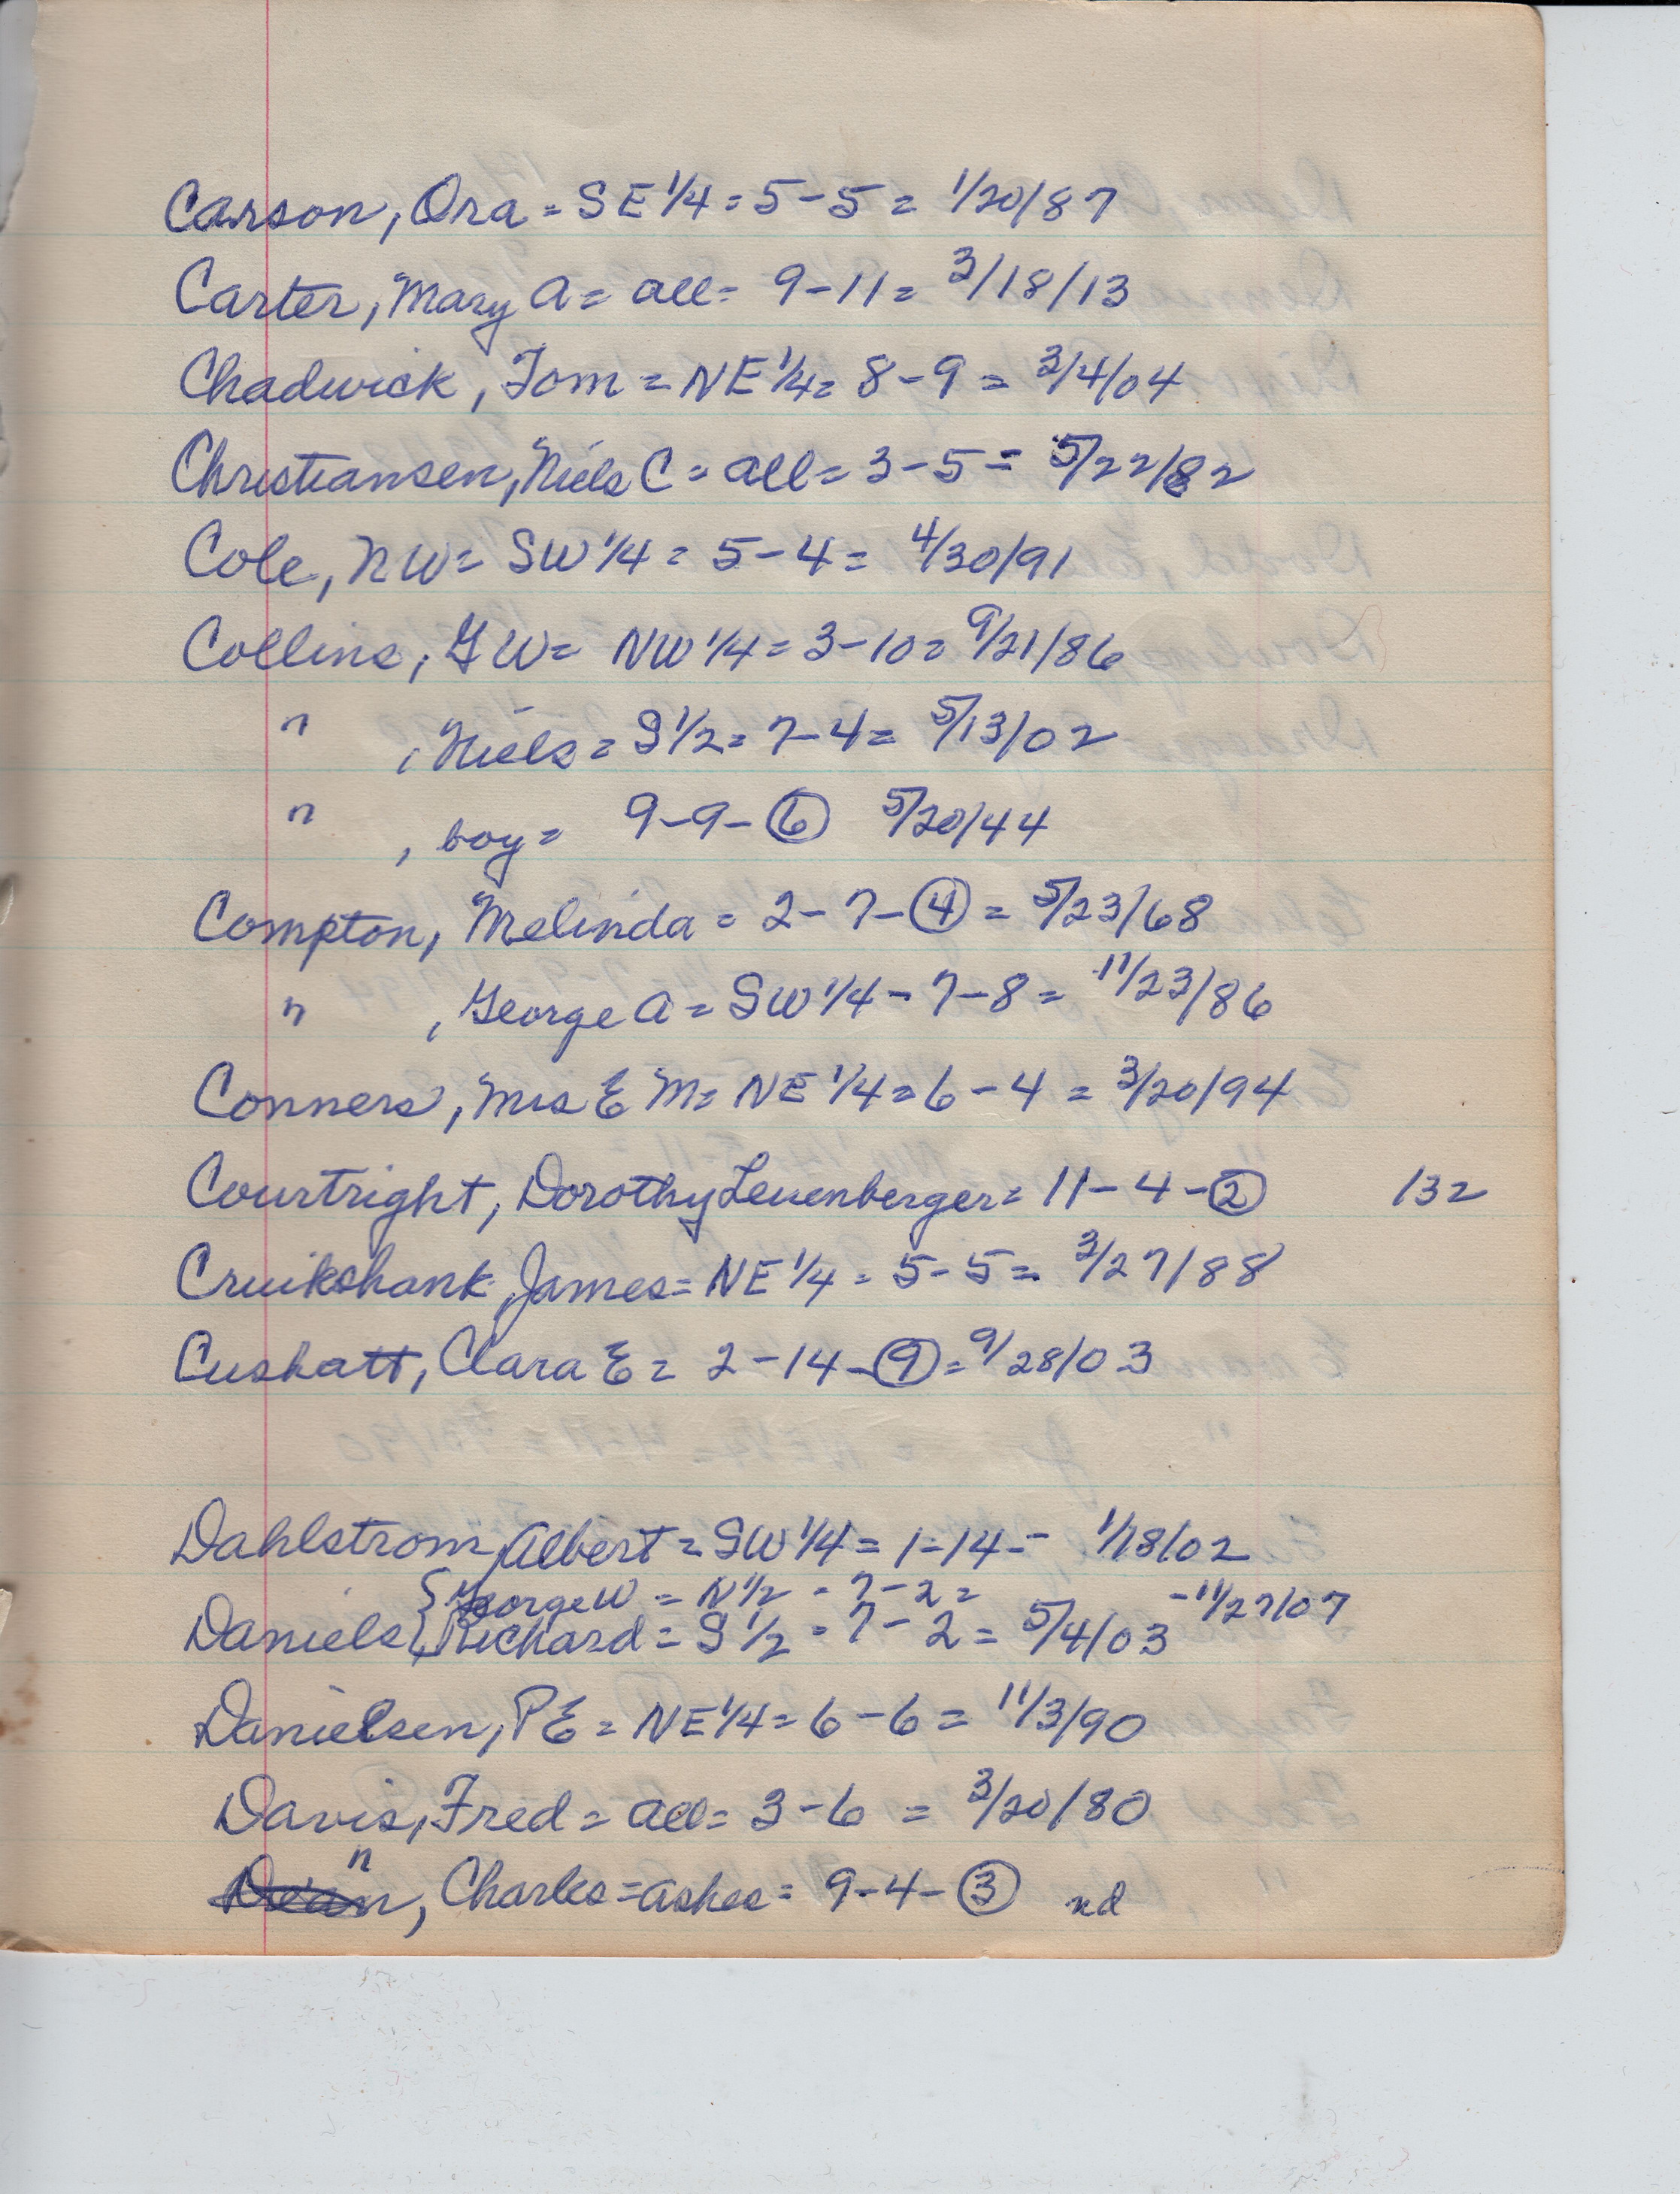 Carson, Ora = SE 1/4 = 5-5 = 1/20/87
Carter, Mary A = all = 9-11 = 3/18/13
Chadwick, Tom = NE 1/4 = 8-9 = 3/4/04
Christiansen, Niels C = all = 3-5 = 5/22/82
Cole, NW = SW 1/4 = 5-4 = 4/30/91
Collins, GW = NW 1/4 = 3-10 = 9/21/86
" , Niels = S 1/2 = 7-4 = 5/13/02
" , boy = 9-9-⑥ 5/20/44
Compton, Melinda = 2-7-④ = 5/23/68
" , George A = SW 1/4 - 7-8 = 11/23/86
Conners, Mrs E M = NE 1/4 = 6-4 = 3/20/94
Courtright, Dorothy Leuenberger = 11-4-② 132
Cruikshank, James = NE 1/4 = 5-5 = 3/27/88
Cushatt, Clara E = 2-14-⑨ = 9/28/03
Dahlstrom, Albert = SW 1/4 = 1-14 = 1/18/02
{George W = N 1/2 = 7-2 = -11/27/07
Daniels {Richard = S 1/2 = 7-2 = 5/4/03
Danielsen, PE = NE 1/4 = 6-6 = 11/3/90
Davis, Fred = all = 3-6 = 3/20/80
" Dean, Charles = ashes = 9-4-③ nd